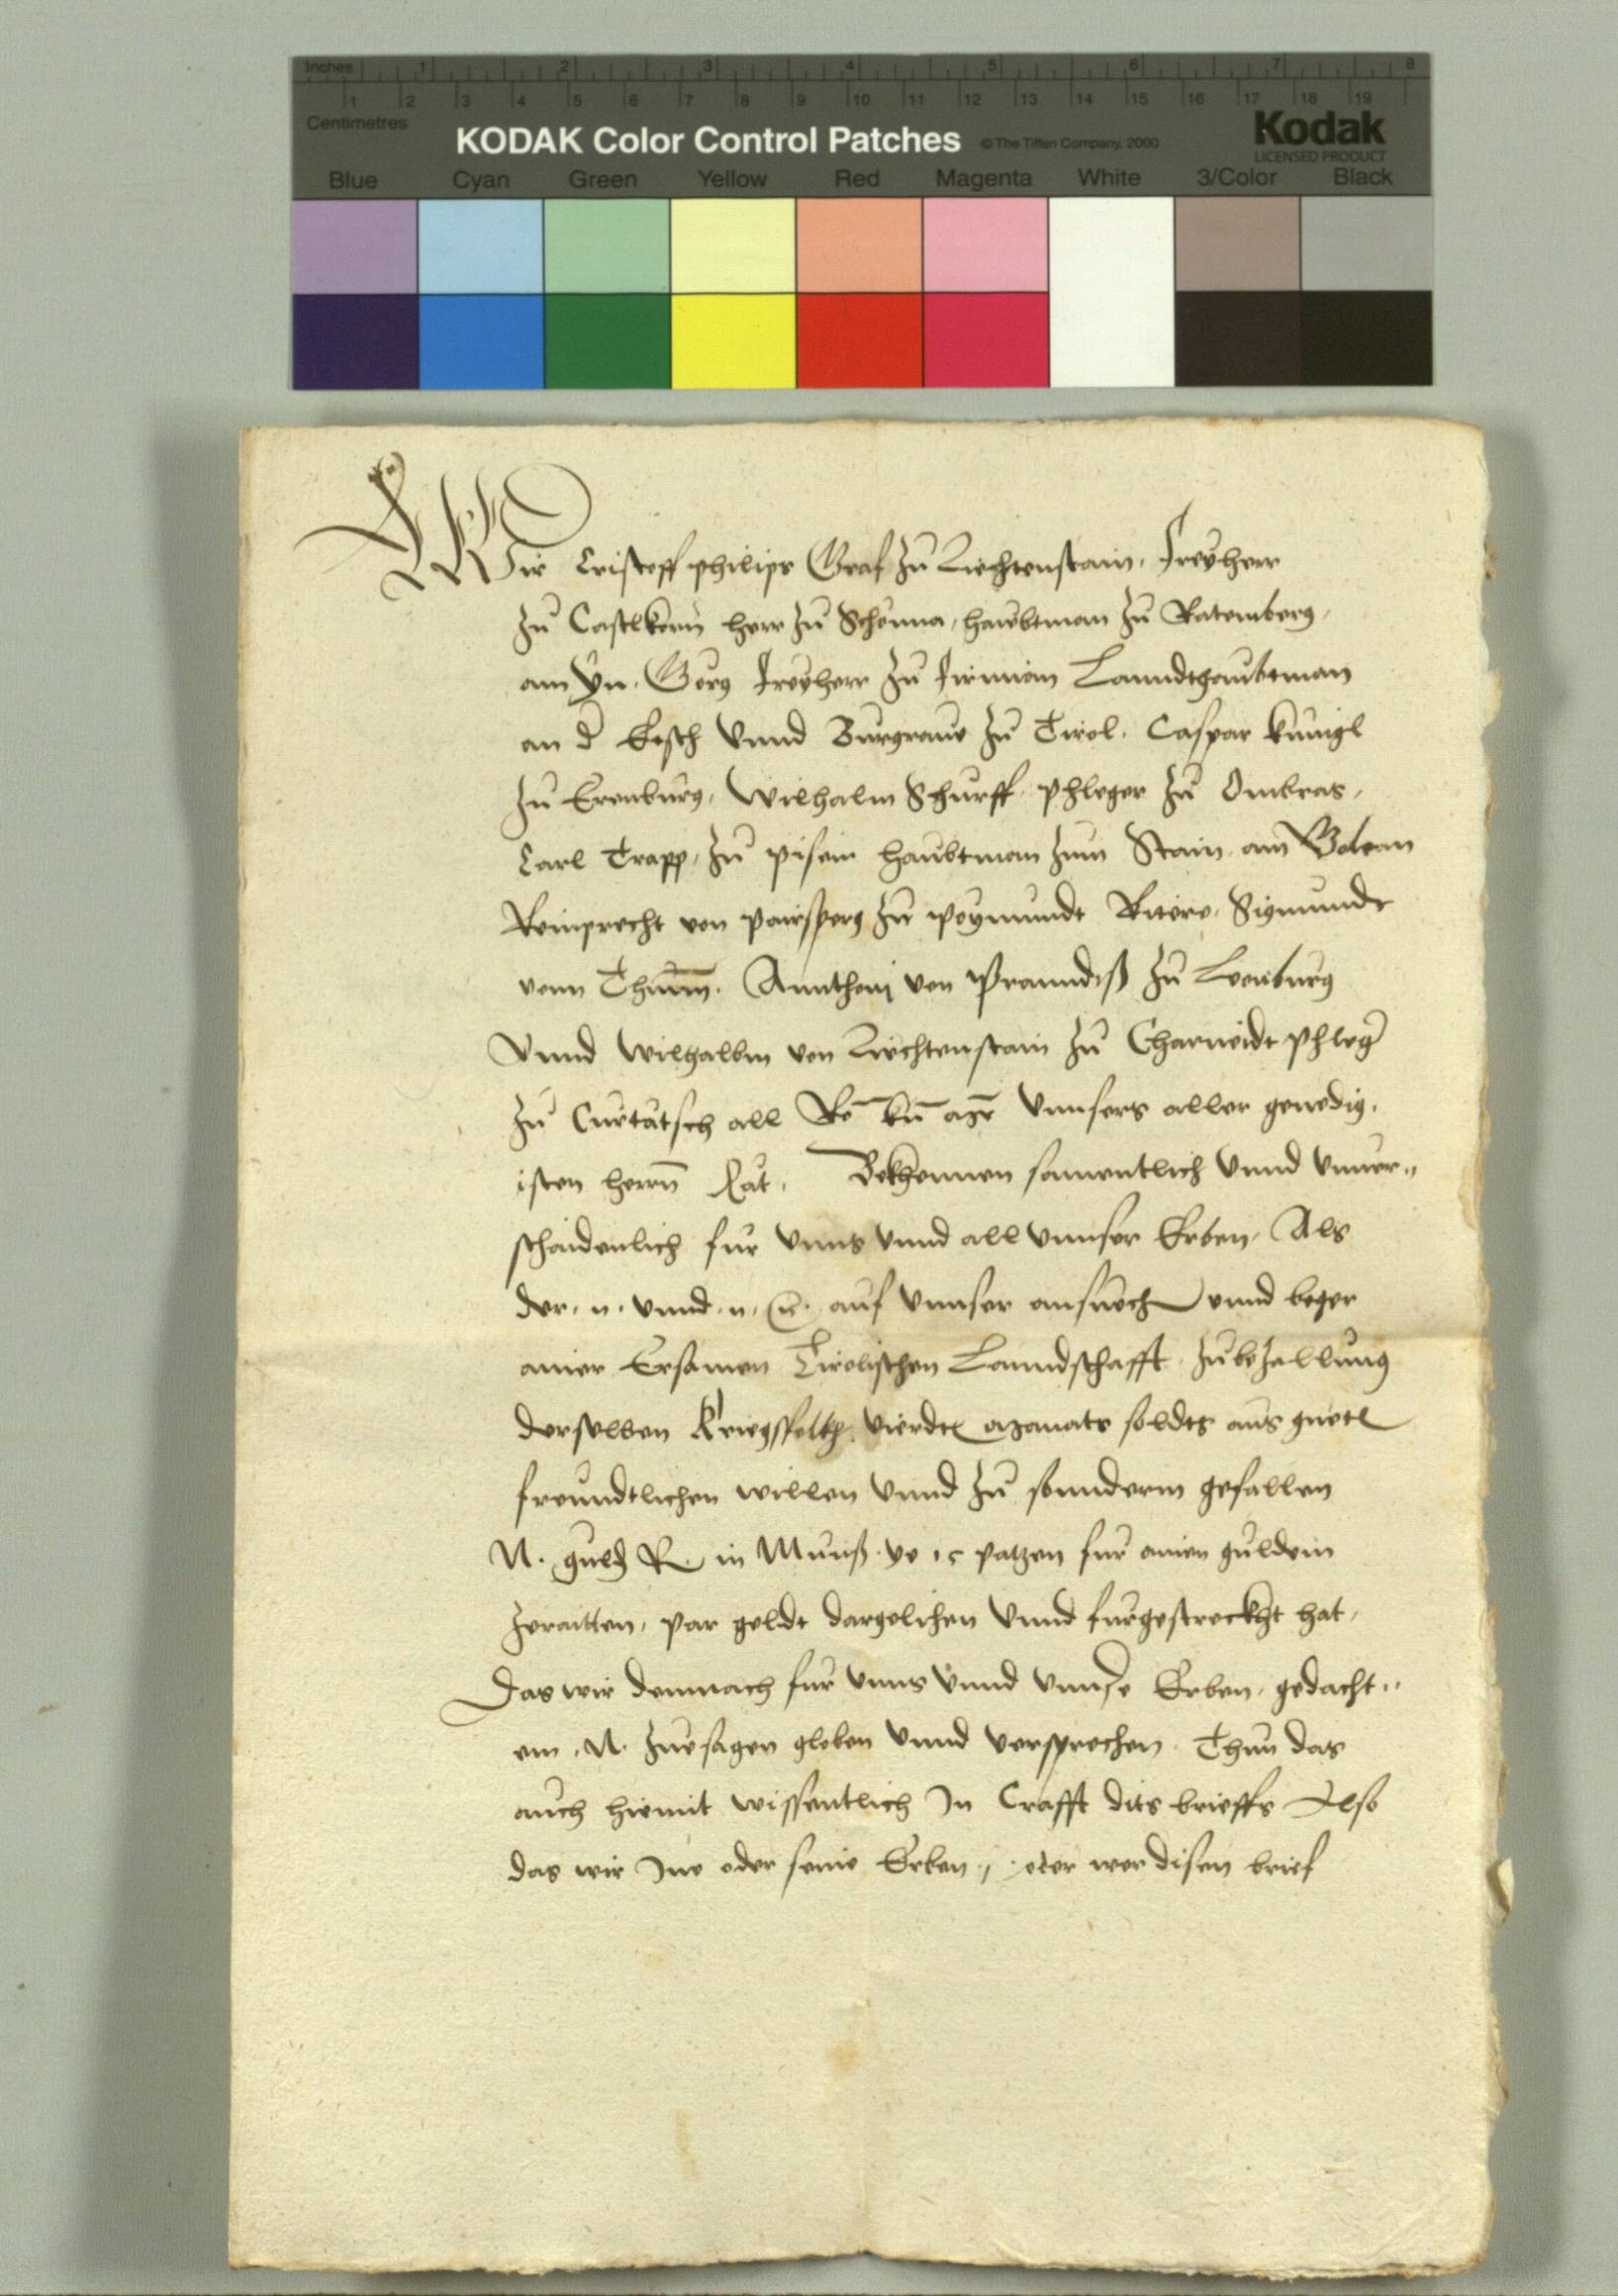 Inches 1 2 3 4 5 6 7 8
1 2 3 4 5 6 7 8 9 10 11 12 13 14 15 16 17 18 19
Centimetres
KODAK Color Control Patches © The Tiffen Company, 2000 Kodak
LICENSED PRODUCT
Blue Cyan Green Yellow Red Magenta White 3/Color Black
Wir Cristoff philips Graf zu Liechtenstain, freyherr
zu Castlkorn herr zu Schenna, haubtman zu Ratemberg,
am Yn. Georg freyherr zu firmian Lanndtshaubtman
an d Etsch vnnd Burgraue zu Tirol. Caspar kunigl
zu Erenburg, Wilhalm Schurff phleger zu Ombras,
Carl Trapp, zu pisein haubtman zum Stain am
Reinprecht von pairsperg zu peymundt Ritere, Sigmundt
vonn Thunn. Annthoni von Pranndiß zu Leonburg
Vnnd Wilhalbm von Liechtenstain zu Charneidt phleg
zu Curtatsch all Ro kn Mt vnnsers aller genedig,
isten herrn Rät. Bekhennen samentlich vnnd vnuer„
schaidenlich fur vnns vnnd all vnnser Erben, Als
der. n. vnnd. n. auf vnnser ansuech vnnd beger
ainer Ersamen Tirolischen Lanndschafft zubezallung
derselben Kriegsfolkh vierdts Monats soldts aus guetl
freundtlichen willen vnnd zu sonnderm gefallen
N. guld R. in Munß ye 15 patzen fur ainen guldein
zeraitten, par geldt dargelichen vnnd furgestreckht hat,
Das wir demnach fur vnns vnnd vnnse Erben, gedacht„
em. N. zuesagen globen vnnd versprechen. Thun das
auch hiemit wissentlich In Crafft dits brieffs Also
das wir Ine oder seine Erben, oder wer disen brief